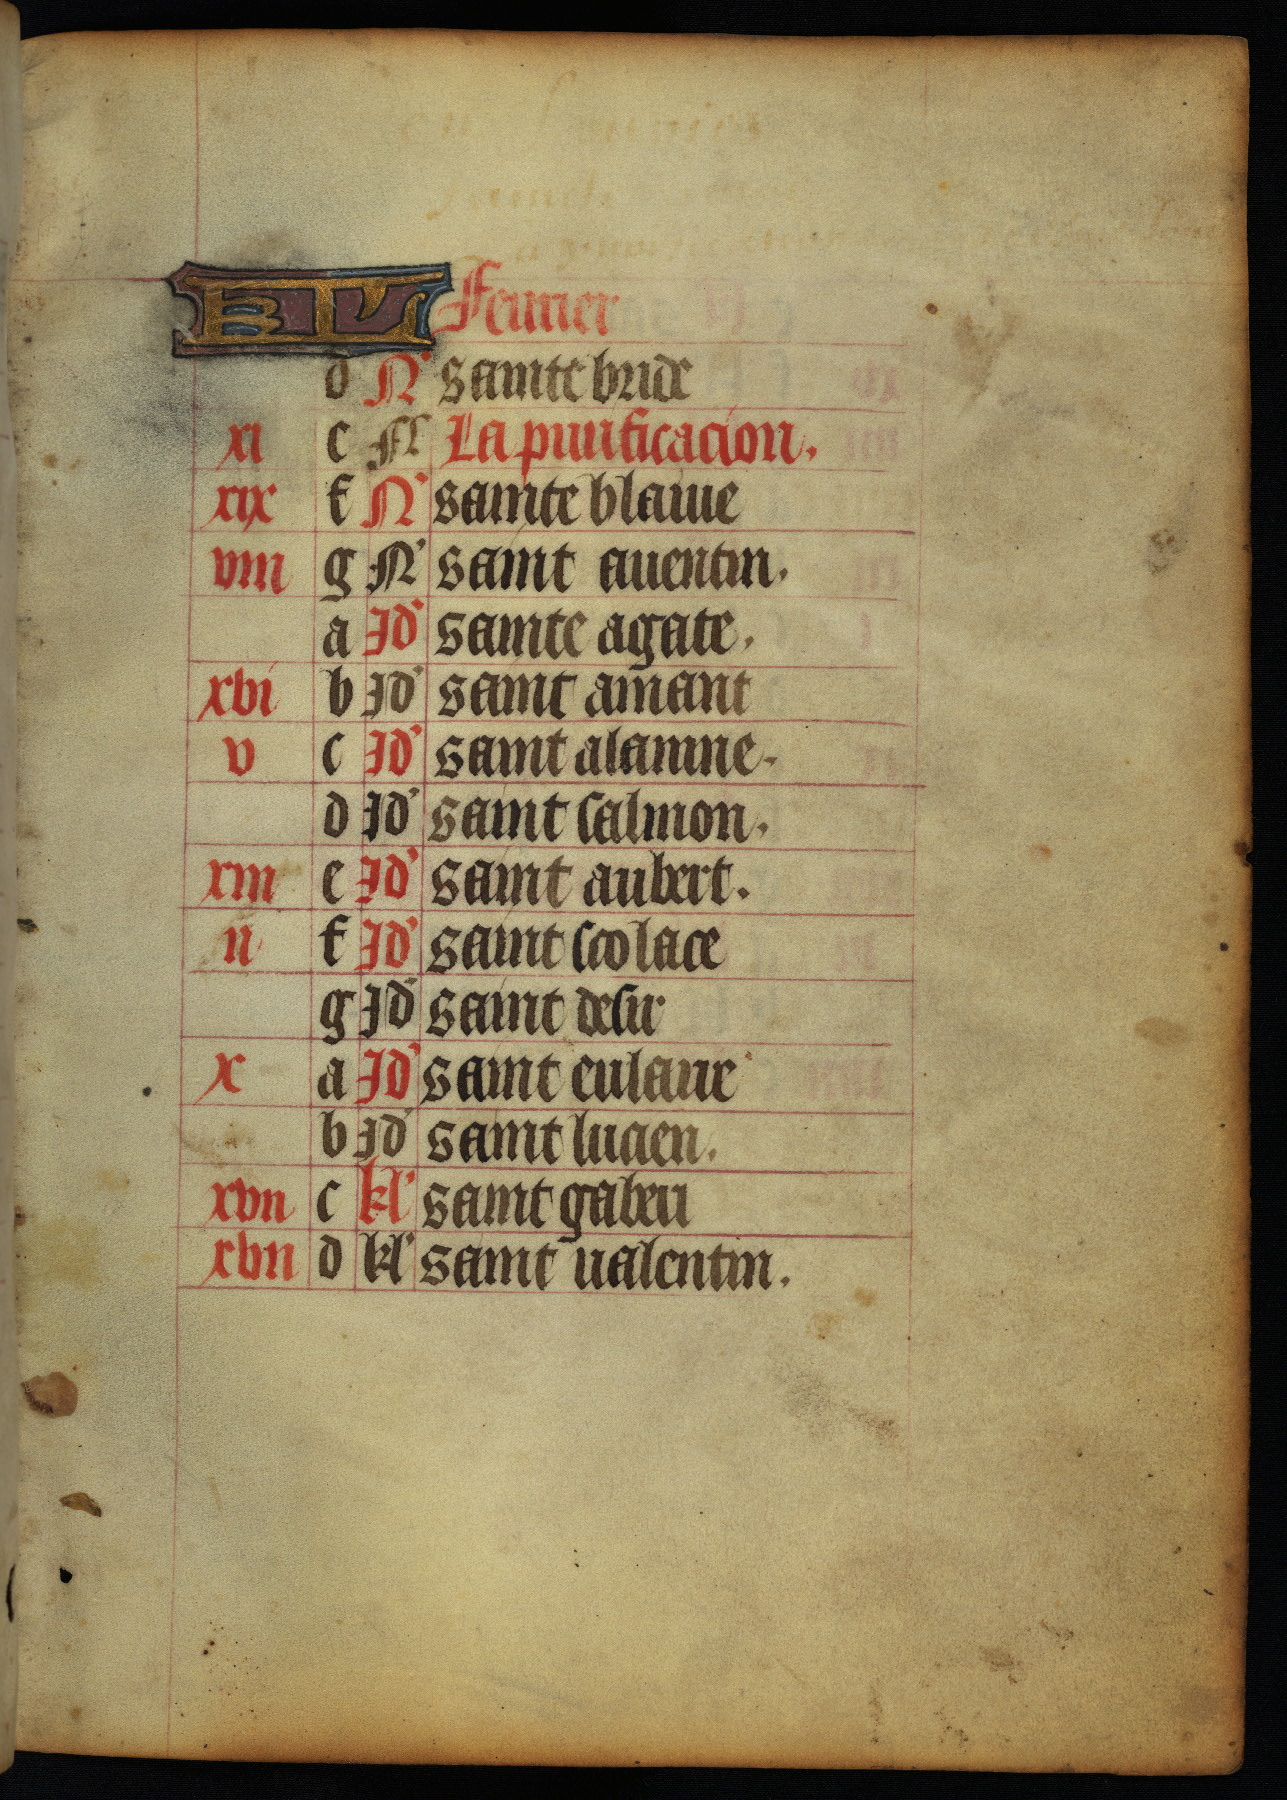 KL Feurier
d N' sainte bride
xi e Nˡ La purificacion.
xix f N' sainte blaiue
viii g N' saint auentin.
a Id' sainte agate.
xvi b Id' saint amant
v c Id' saint alamne.
d Id' saint salmon.
xiii e Id' saint aubert.
ii f Id' saint scolace
g Id' saint desir
x a Id' saint eulaue
b Id' saint lucien.
xvii c kl' saint gabeu
xvii d kl' saint ualentin.